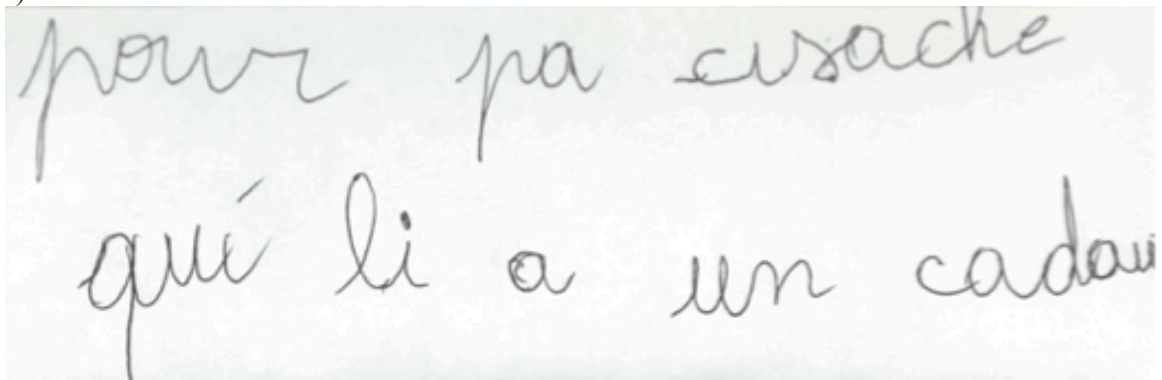 pour pa cusache
qui li a un cadau